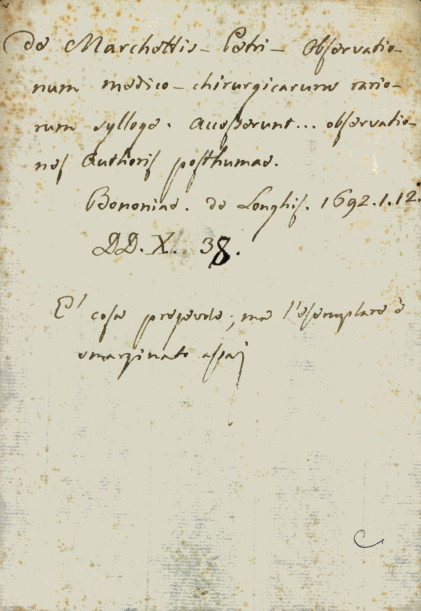 De Marchettis - Petri - Observatio-
num medico - chirurgicarum rario-
rum sylloge. Accesserunt... observatio-
nes Authoris posthumae.
Bononiae. de Longhis. 1692. 1. 12.
DD. X. 38.
E' cosa pregevole; ma l'esemplare è
smarginato assai